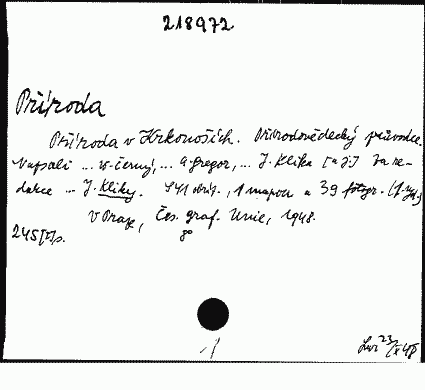 218972
Příroda
Příroda v Krkonoších. Přírodovědecký průvodce.
Napsali ... W. Černý, ... A. Gregor, ... J. Klika [a j.] Za re-
dakce ... J. Kliky. S 41 obr., 1 mapou a 39 fotogr. (1. vyd.)
V Praze, Čes. graf. Unie, 1948.
245 [2] s. 8°
23/X 48